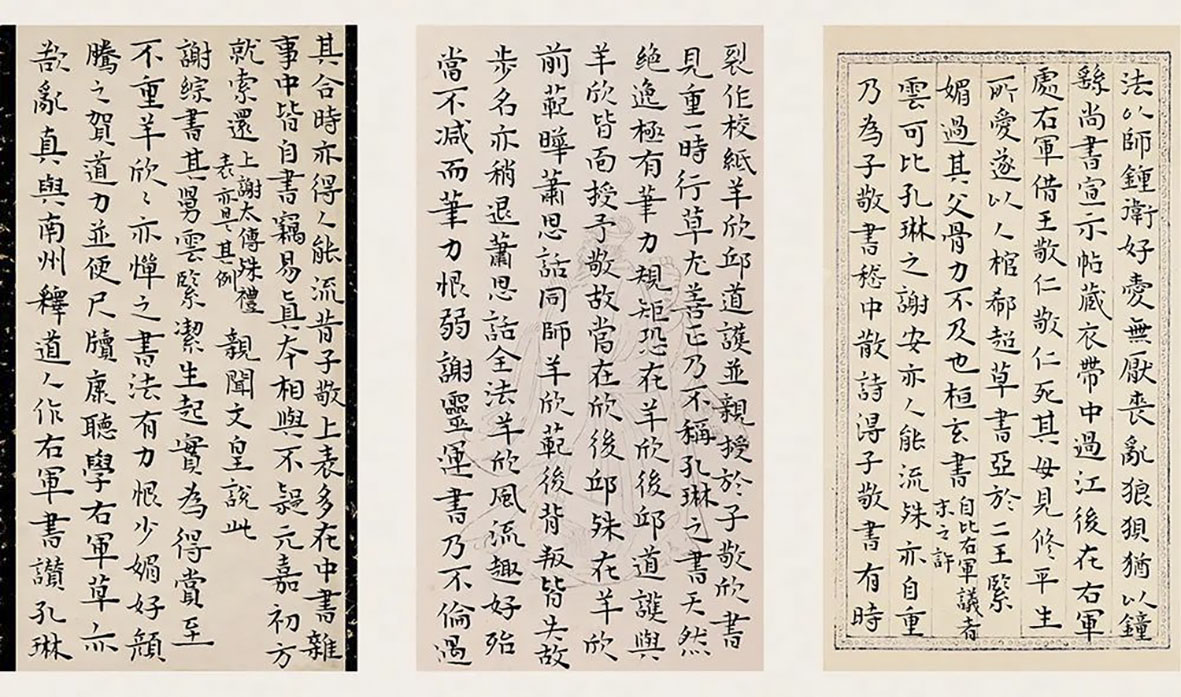 法以師鍾衛好愛無厭喪亂狼狽猶以鐘
繇尚書宣示帖藏衣帶中過江後在右軍
處右軍借王敬仁敬仁死其母見修平生
所愛遂以入棺郗超草書亞於二王緊
媚過其父骨力不及也桓玄書自比右軍議者未之許
雲可比孔琳之謝安亦入能流殊亦自重
乃為子敬書嵇中散詩得子敬書有時
裂作校紙羊欣邱道護並親授於子敬欣書
見重一時行草尤善正乃不稱孔琳之書天然
絕逸極有筆力規矩恐在羊欣後邱道護與
羊欣皆面授子敬故當在欣後邱殊在羊欣
前範曄蕭思話同師羊欣範後背叛皆失故
步名亦稍退蕭思話全法羊欣風流趣好殆
當不減而筆力恨弱謝靈運書乃不倫遇
其合時亦得入能流昔子敬上表多在中書雜
事中皆自書竊易真本相與不疑元嘉初方
就索還上謝太傅殊禮表亦是其例親聞文皇說此
謝綜書其舅雲緊潔生起實為得賞至
不重羊欣〻亦憚之書法有力恨少媚好顏
騰之賀道力並便尺牘康聽學右軍草亦
欲亂真與南州釋道人作右軍書讚孔琳